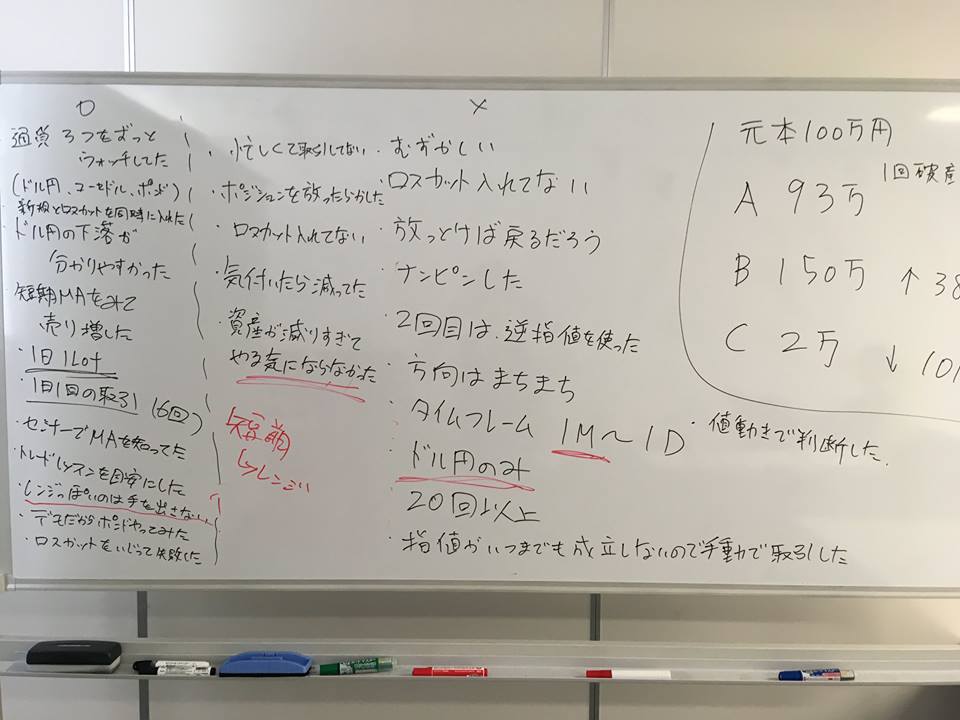 ○
通貨3つをずっと
ウォッチしてた
(ドル円、ユーロドル、ポンド)
新規とロスカットを同時に入れた
ドル円の下落が
分かりやすかった
短期MAをみて
売り増した
・1日1Lot
・1日1回の取引 (6回)
・セミナーでMAを知ってた
・トレンドラインを目安にした
・レンジっぽいのは手を出さない
・デモだからポンドやってみた
・ロスカットをいじって失敗した
・忙しくて取引してない
・ポジションを放ったらかした
・ロスカット入れてない
・気付いたら減ってた
・資産が減りすぎて
やる気にならなかった
短期
×
・むずかしい
・ロスカット入れてない
・放っとけば戻るだろう
・ナンピンした
・2回目は、逆指値を使った
・方向はまちまち
・タイムフレーム 1M〜1D
・ドル円のみ
・20回以上
・指値がいつまでも成立しないので手動で取引した
・値動きで判断した.
元本100万円
1回破産
A 93万
B 150万 ↑38
C 2万 ↓101